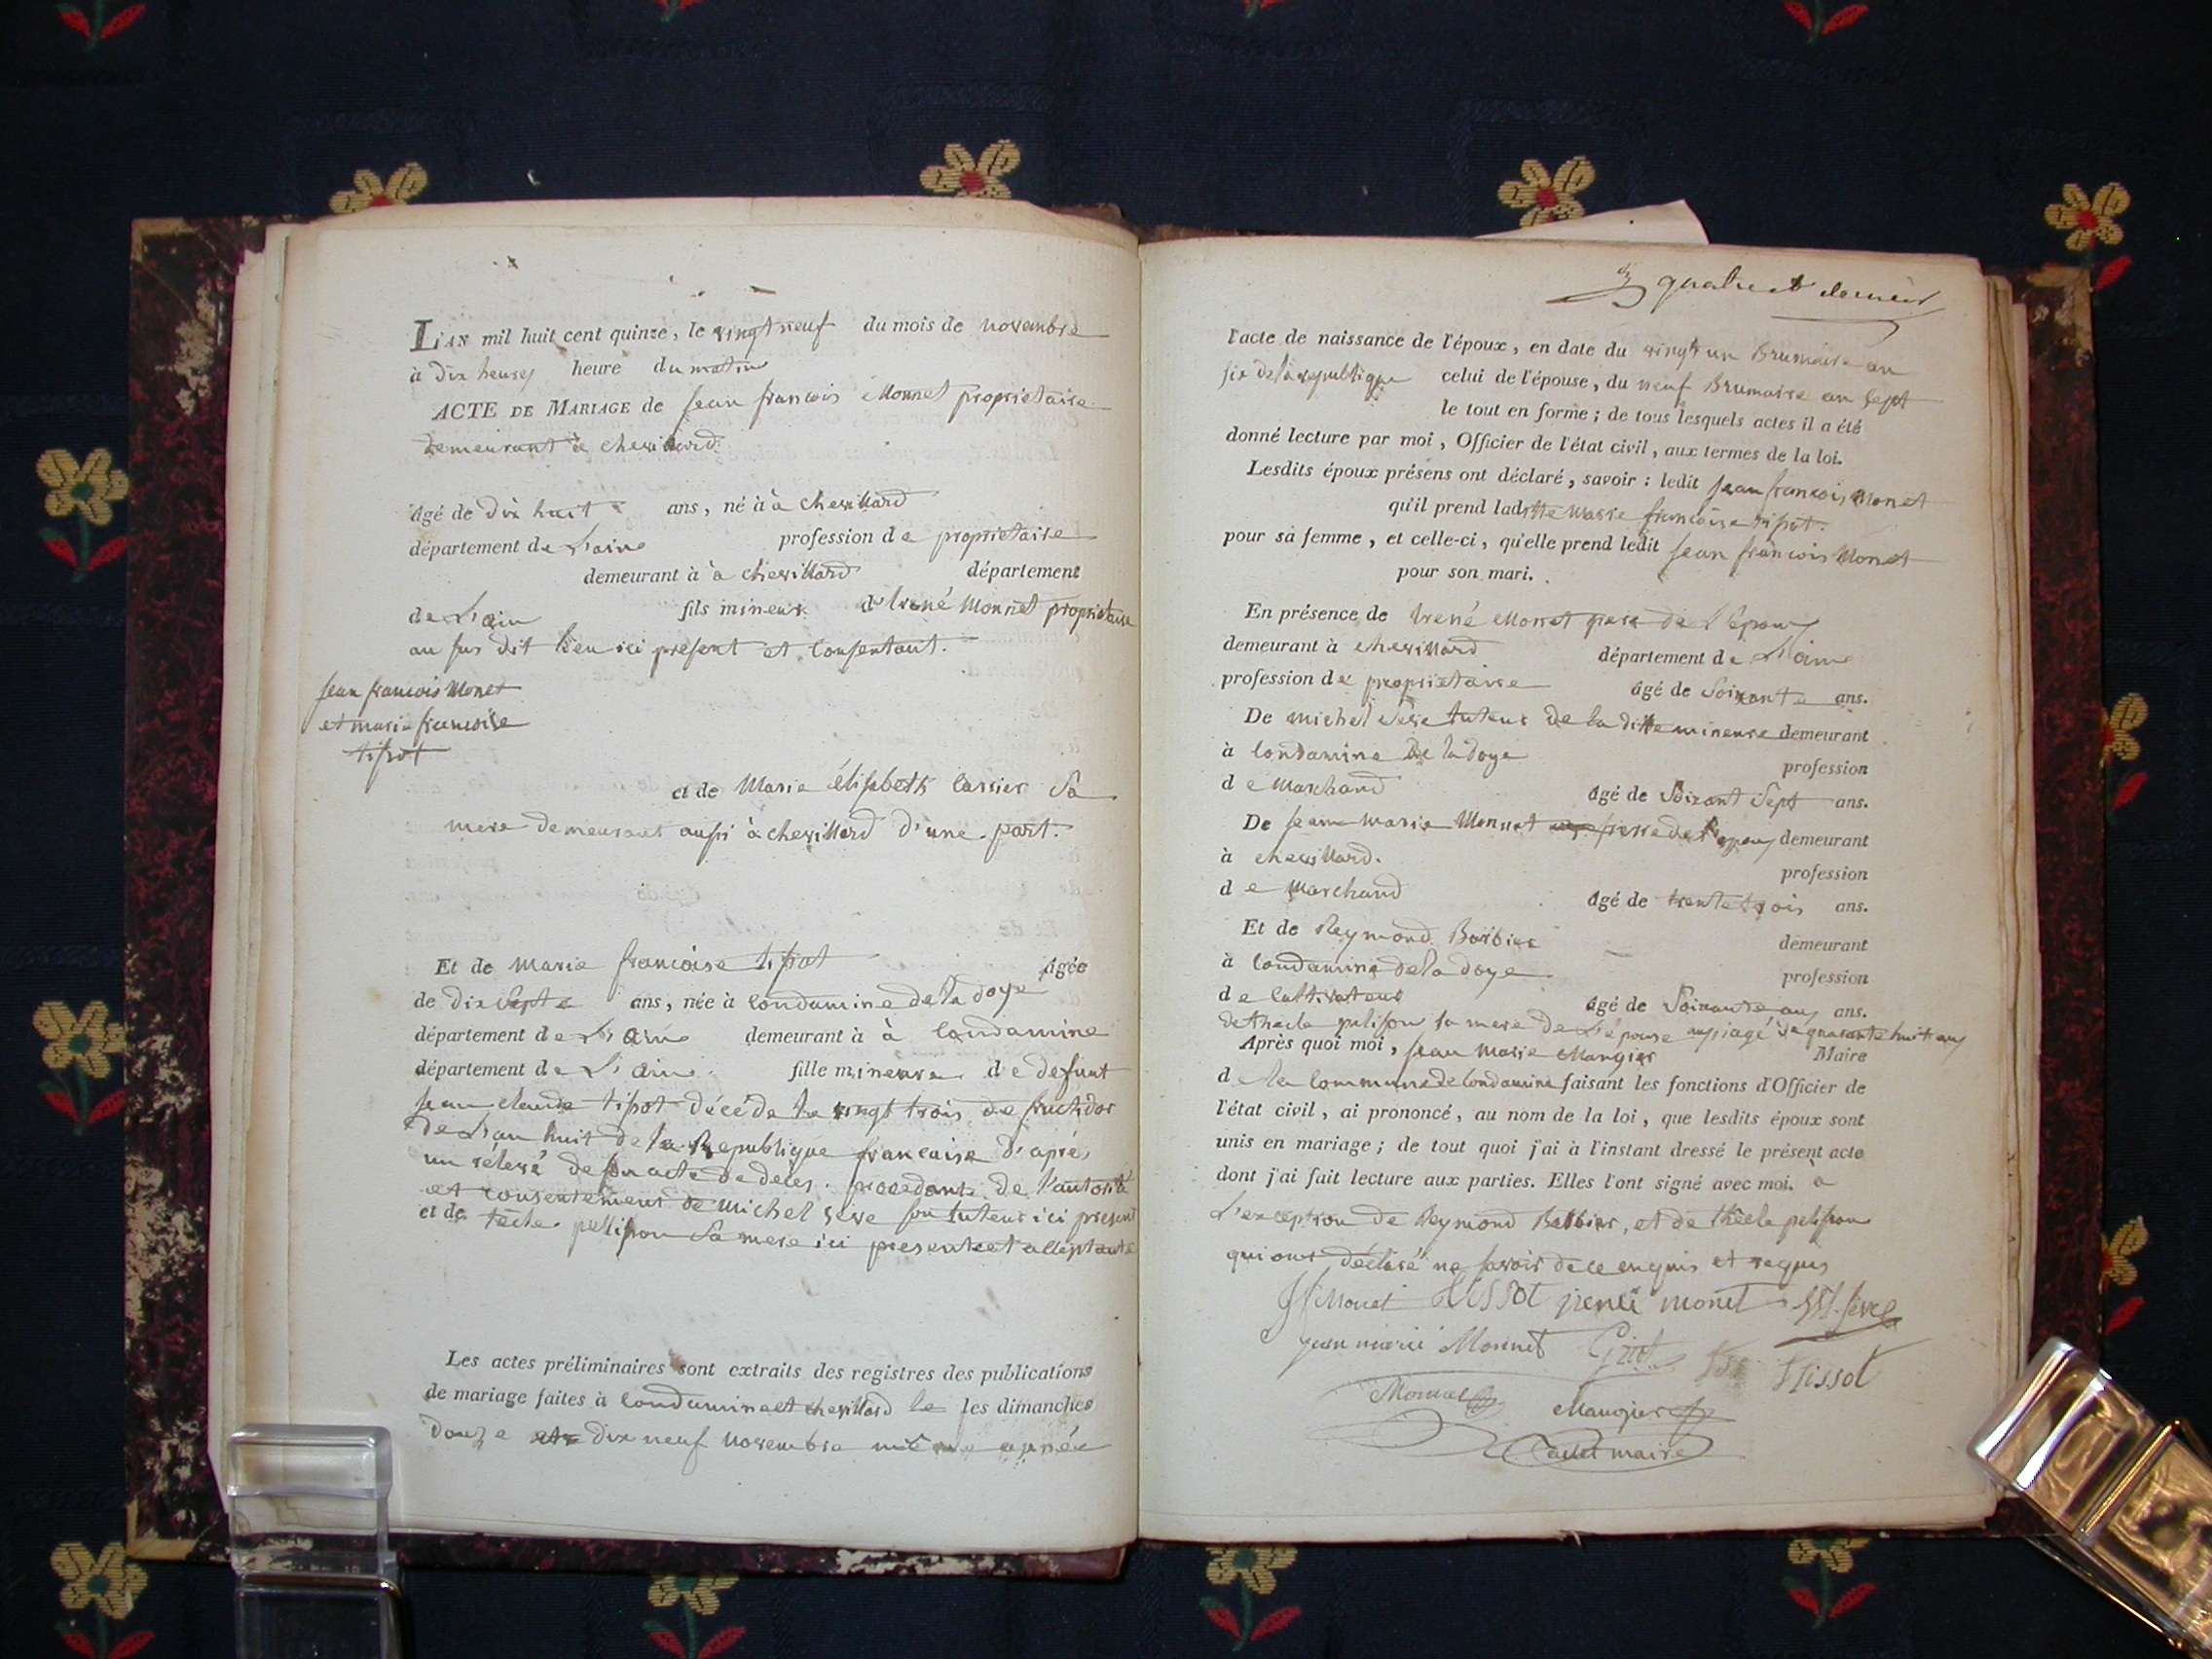 L'AN mil huit cent quinze, le vingt neuf du mois de novembre
à dix heures heure du matin
ACTE DE MARIAGE de jean francois Monnet proprietaire
demeurant à chevillard
âgé de dix huit ans, né à à chevillard
département de L'ain profession de proprietaire
demeurant à à chevillard département
de L'ain fils mineur d' irené Monnet proprietaire
au sus dit lieu ici present et consentant.
jean francois Monet
et marie francoise
tisot
et de Marie élisabeth Carrier Sa
mere demeurant aussi à chevillard d'une part.
Et de marie francoise tissot âgée
de dix Sept ans, née à Condamine de la doye
département de L'ain demeurant à à Condamine
département de L'ain fille mineure de defunt
jean claude tisot décédé le vingt trois de fructidor
de L'an huit de la Republique francaise d'aprés
un rélevé de son acte de deces. procedante de l'autorité
et consentement de Michel seve son tuteur ici present
et de técle pelisson Sa mere ici presente et acceptante
Les actes préliminaires sont extraits des registres des publications
de mariage faites à Condamine et chevillard le les dimanches
douze et dix neuf novembre même année
quatre et dernier
l'acte de naissance de l'époux, en date du vingt un Brumaire an
six de la republique celui de l'épouse, du neuf Brumaire an Sept
le tout en forme; de tous lesquels actes il a été
donné lecture par moi, Officier de l'état civil, aux termes de la loi.
Lesdits époux présens ont déclaré, savoir: ledit jean francois Monet
qu'il prend laditte marie francoise tisot.
pour sa femme, et celle-ci, qu'elle prend ledit jean francois Monet
pour son mari.
En présence de irené Monet pere de L'epoux
demeurant à chevillard département de L'ain
profession de proprietaire âgé de Soixante ans.
De michel Seve tuteur de la ditte mineure demeurant
à Condamine De la doye profession
de Marchand âgé de Soixant Sept ans.
De jean marie Monnet frere de L'epoux demeurant
à chevillard. profession
de Marchand âgé de trente trois ans.
Et de Reymond Barbier demeurant
à Condamine de la doye profession
de Cultivateur âgé de Soixante ans ans.
de thecle pelison sa mere de L'épouse aussi agé de quarante huit ans
Après quoi moi, jean marie Maugier Maire
de la Commune de Condamine faisant les fonctions d'Officier de
l'état civil, ai prononcé, au nom de la loi, que lesdits époux sont
unis en mariage; de tout quoi j'ai à l'instant dressé le présent acte
dont j'ai fait lecture aux parties. Elles l'ont signé avec moi. à
L'exception de Reymond Barbier, et de thécle pelisson
qui ont déclaré ne savoir de ce enquis et requis
Monet tissot irenéé monet seve
jean marié Monnet tissot
Monnet Maugier
maire